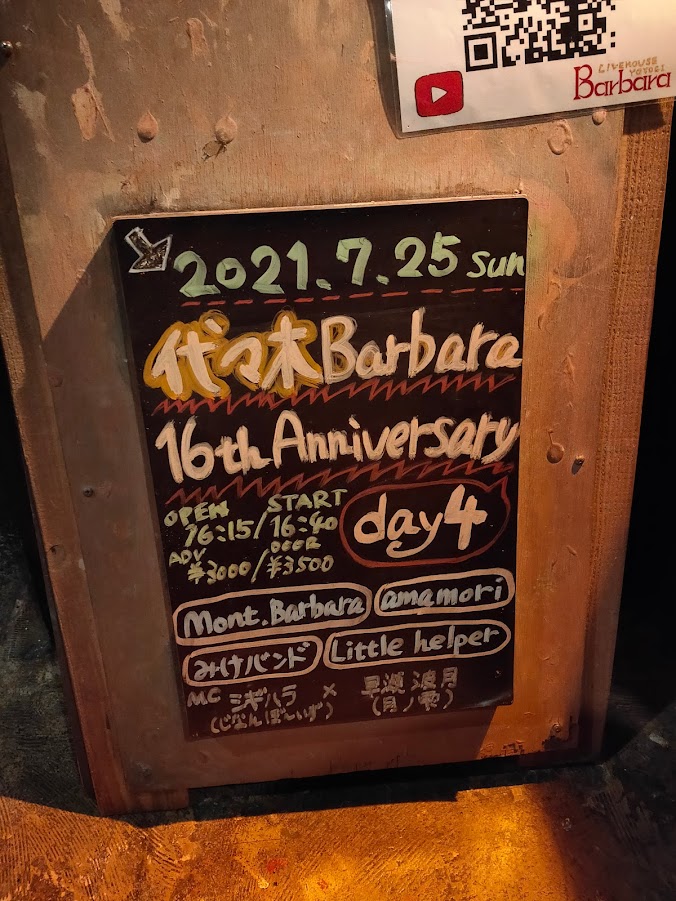 LIVEHOUSE
YOYOGI
Barbara
2021.7.25 sun
代々木Barbara
16th Anniversary
OPEN START
16:15/16:40
day4
ADV DOOR
¥3000/¥3500
Mont.Barbara amamori
みけバンド Little helper
MC ミギハラ × 早瀬 渡月
(じなんぼーいず) (月ノ雫)